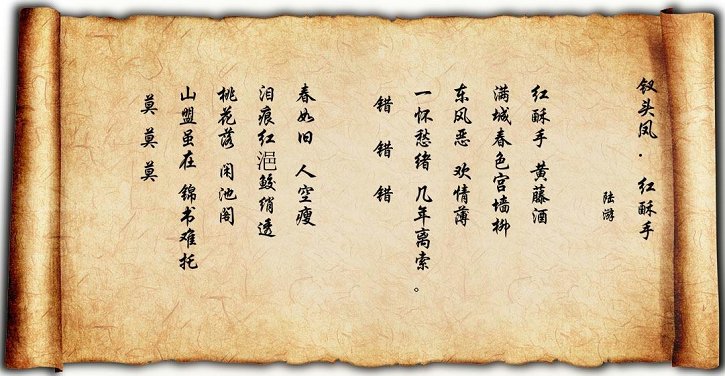 钗头凤 · 红酥手
陆游
红酥手 黄藤酒
满城春色宫墙柳
东风恶 欢情薄
一怀愁绪 几年离索。
错 错 错
春如旧 人空瘦
泪痕红浥鲛绡透
桃花落 闲池阁
山盟虽在 锦书难托
莫 莫 莫